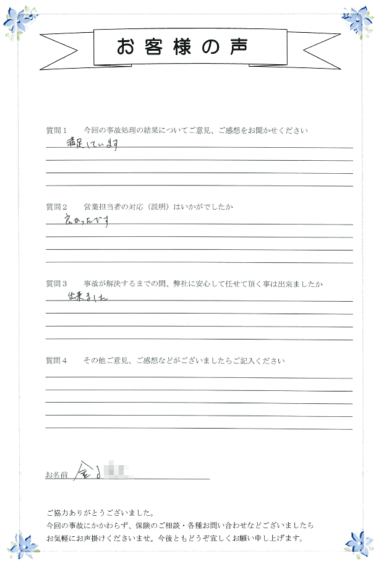 お客様の声
質問1　今回の事故処理の結果についてご意見、ご感想をお聞かせください
満足しています
質問2　営業担当者の対応（説明）はいかがでしたか
良かったです
質問3　事故が解決するまでの間、弊社に安心して任せて頂く事は出来ましたか
出来ました
質問4　その他ご意見、ご感想などがございましたらご記入ください
お名前　金
ご協力ありがとうございました。
今回の事故にかかわらず、保険のご相談・各種お問い合わせなどございましたら
お気軽にお声掛けくださいませ。今後ともどうぞ宜しくお願い申し上げます。